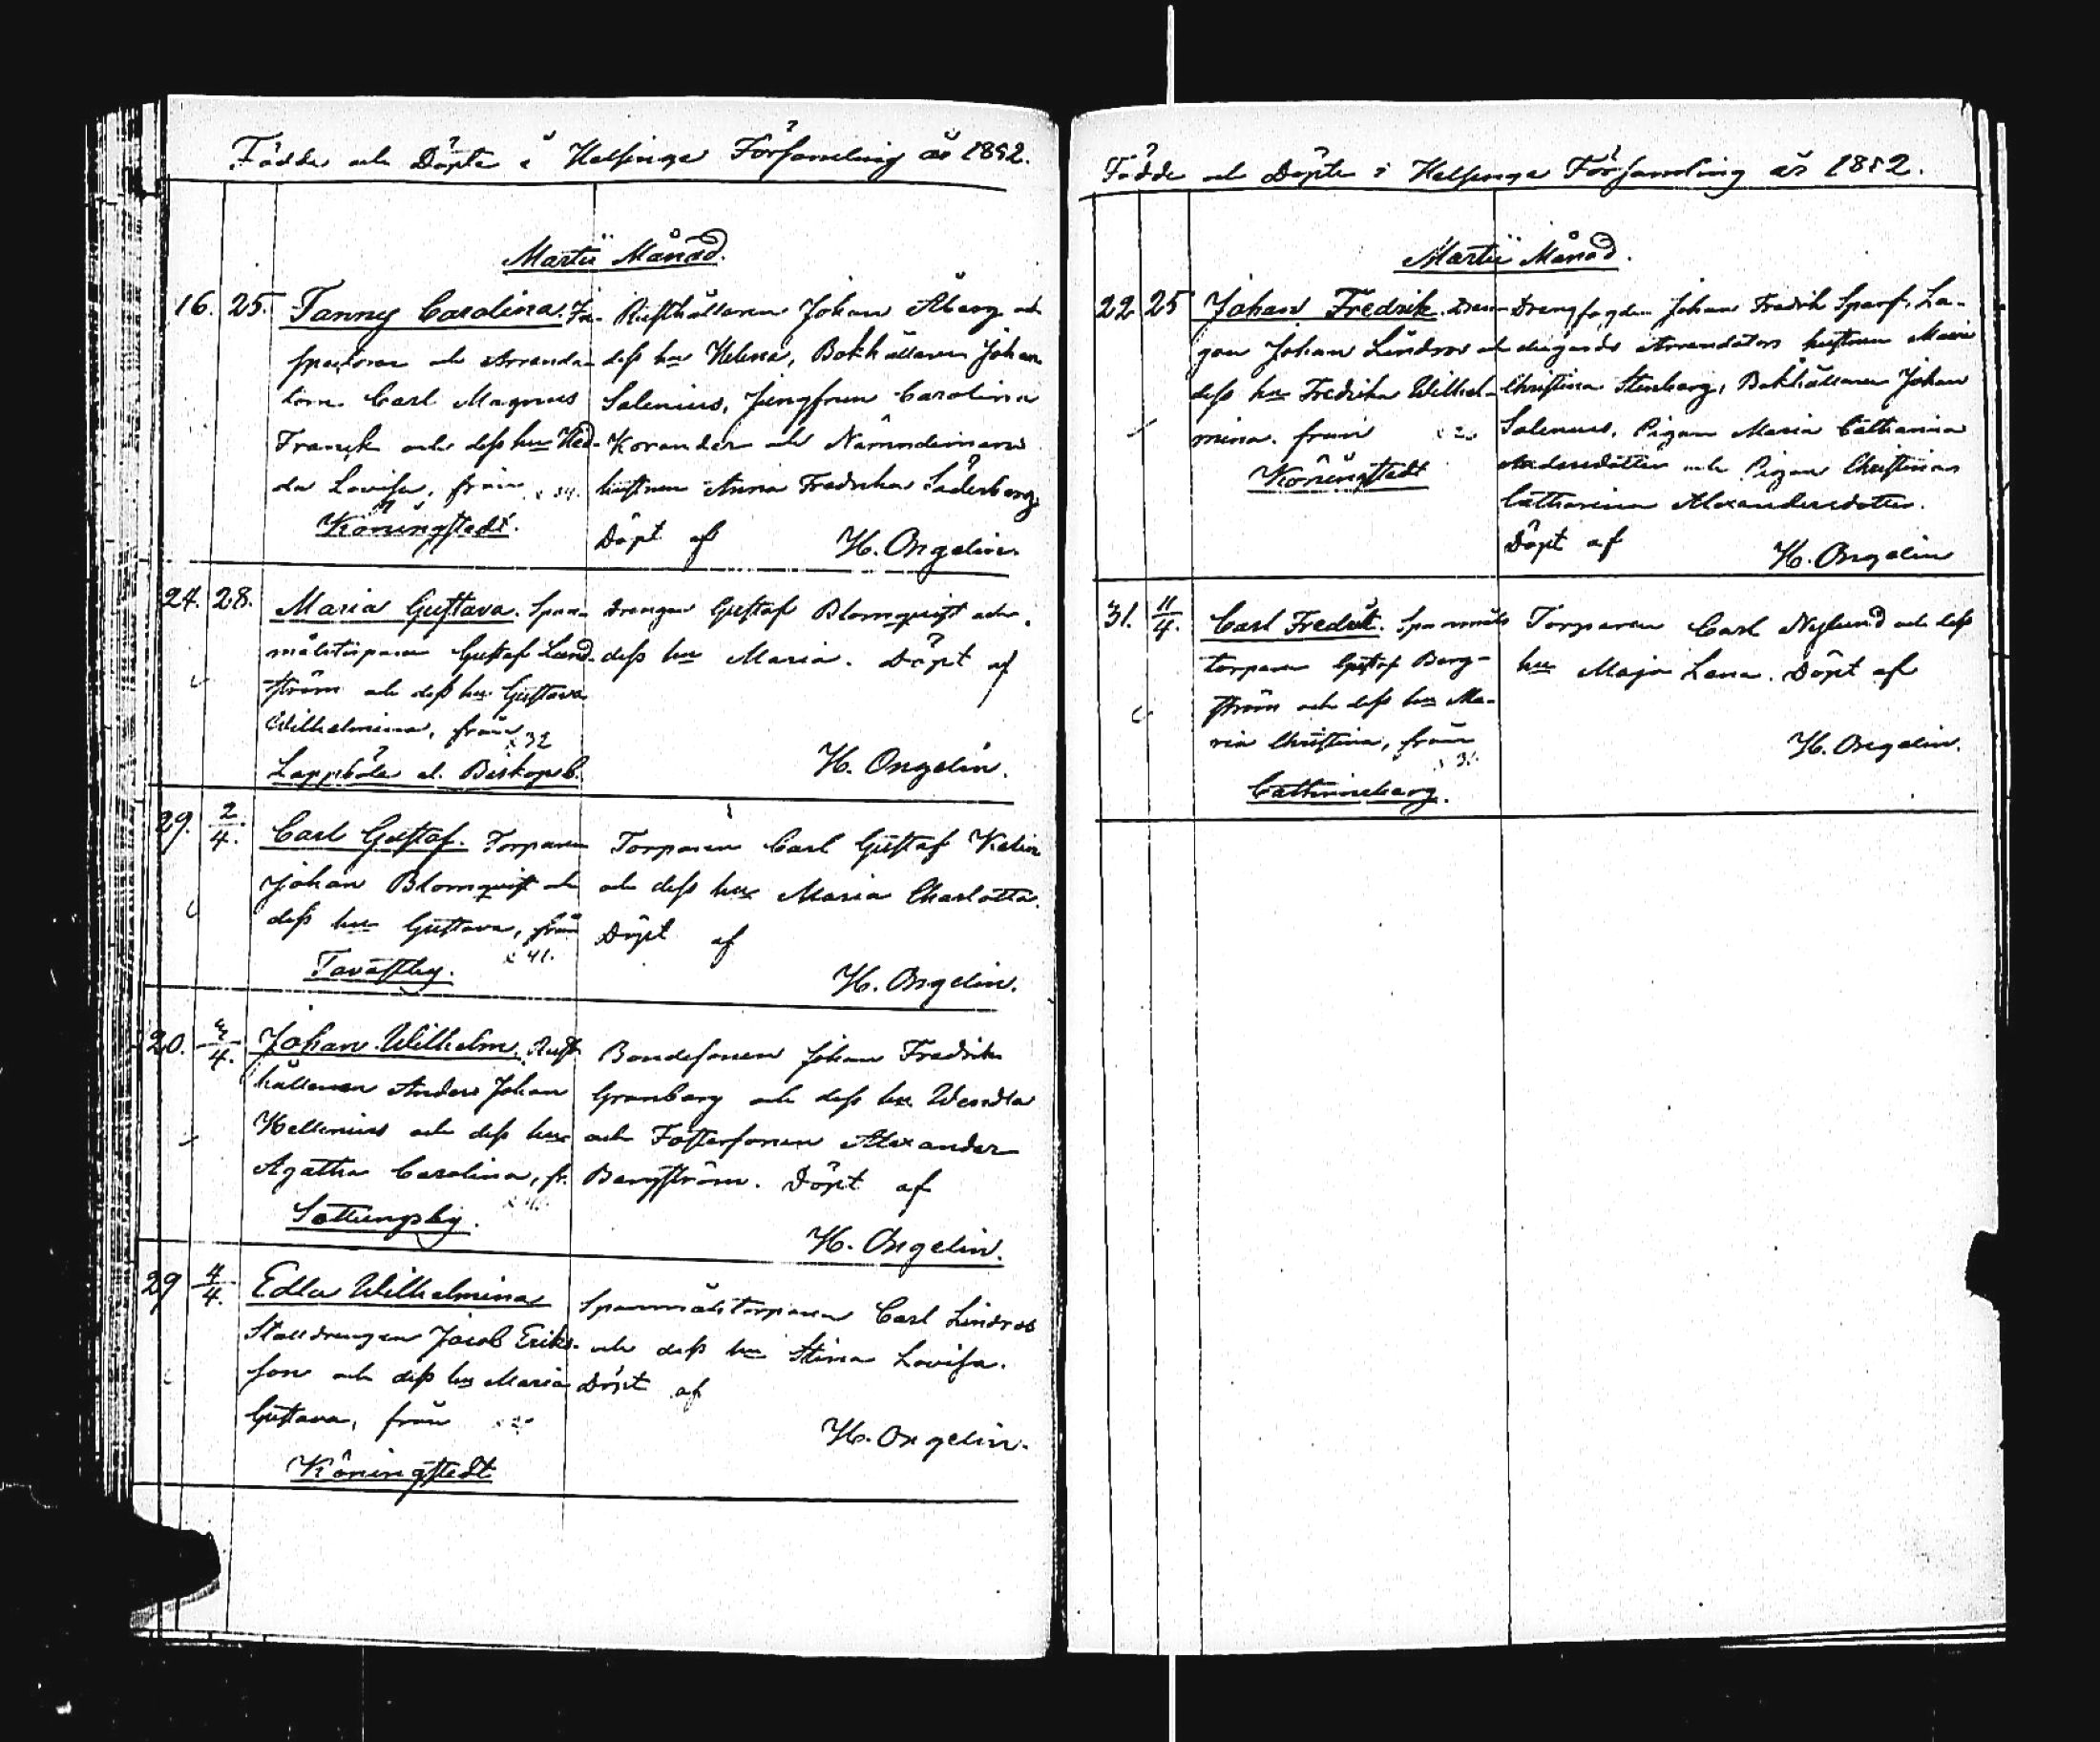 Födde och Döpte i Helsinge Församling år 1852.
Martii Månad.
16. 25. Fanny Carolina. In-
spectoren och Arrenda-
torn Carl Magnus
Franck och dess hu Hed-
da Lovisa, från
Köningstedt.
Rusthållaren Johan Åberg och
dess hu Helena, Bokhållaren Johan
Salenius, Jungfrun Carolina
Korander och Nämndemans
hustrun Anna Fredrika Söderberg
Döpt af H. Ongelin.
24. 28. Maria Gustava. Span-
målstorparen Gustaf Land-
ström och dess hu Gustava
Wilhelmina, från
x 32
Lappböle el. Biskopsb.
Drengen Gustaf Blomquist och
dess hu Maria. Döpt af
H. Ongelin.
29. 2/4. Carl Gustaf. Torparen
Johan Blomquist och
dess hu Gustava, från
x 41.
Tavastby.
Torparen Carl Gustaf
och dess hu Maria Charlotta.
Döpt af
H. Ongelin.
20. /4. Johan Wilhelm. Rust-
hållaren Anders Johan
Hellenius och dess hu
Agatha Carolina, fr.
Sottungsby.
Bondesonen Johan Fredrik
Granberg och dess hu Wendla
och Fostersonen Alexander
Bergström. Döpt af
H. Ongelin.
29 4/4. Edla Wilhelmina
Stalldrengen Jacob Eriks-
son och dess hu Maria
Gustava, från
Köningstedt
Spanmålstorparen Carl Lindros
och dess hu Stina Lovisa.
Döpt af
H. Ongelin.
Födde och Döpte i Helsinge Församling år 1852.
Martii Månad.
22 25 Johan Fredrik. Dren-
gen Johan Lindros och
dess hu Fredrika Wilhel-
mina. från
Köningstedt
Drengfogden Johan Fredrik Sparf, La-
Arrendators hustrun Maria
Christina Stenberg, Bokhållaren Johan
Salenius, Pigan Maria Catharina
Andersdotter och Pigan Christina
Catharina Alexandersdotter.
Döpt af H. Ongelin
31. 11/4. Carl Fredrik. Spanmåls
torparen Gustaf Berg-
ström och dess hu Ma-
ria Christina, från
Cathrineberg.
Torparen Carl Nylund och dess
hu Maja Lena. Döpt af
H. Ongelin.